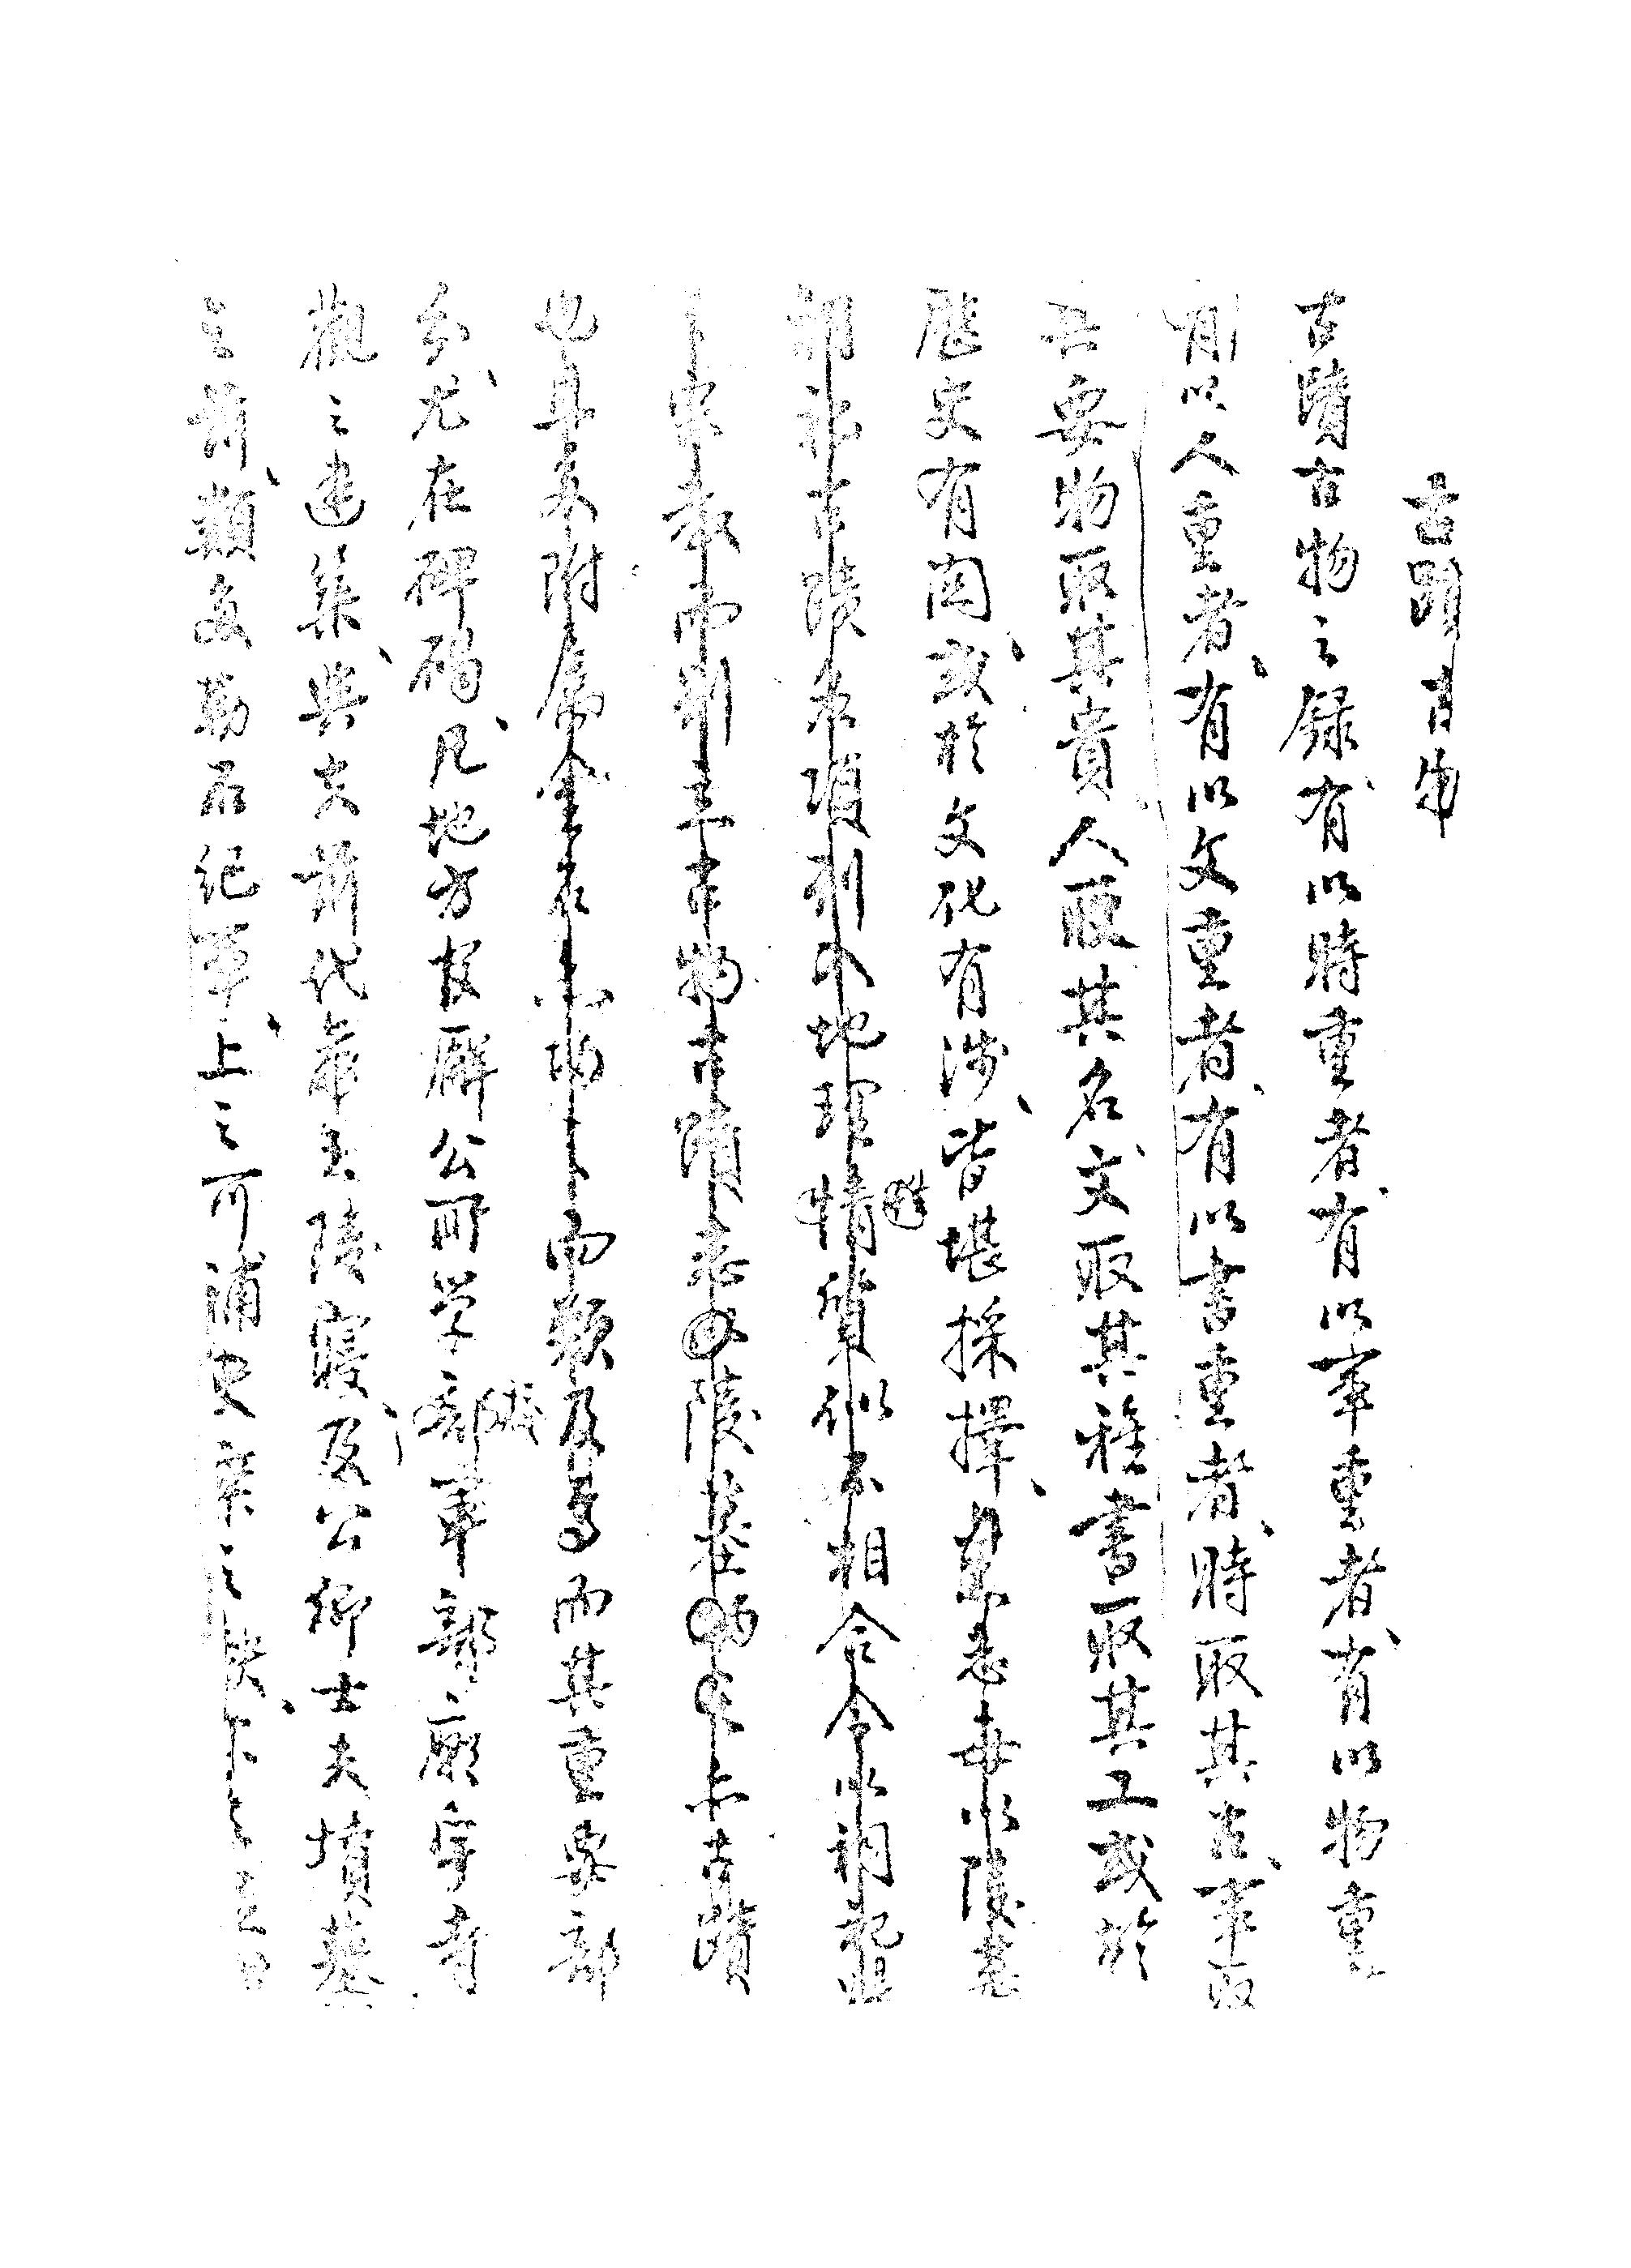 古蹟古物
古蹟古物之録有以時重者有以事重者有以物重
有以人重者有以文重者有以書重者時取其古事取
其要物取其貴人取其名文取其雅書取其工或於
歷史有関或於文化有涉皆堪採擇舊志每以陵墓
祠祀古蹟名項列入地理情質似不相合今以祠祀
宗教而別立古物古蹟志陵墓亦古蹟
也其不附屬金石而類及焉而其重要部
分尤在碑碣凡地方官廨公所学部軍部廟宇寺
觀之建築與夫前代帝王陵寢及公卿士夫墳墓
之前類多勒石紀事上之可補史乘之缺下之